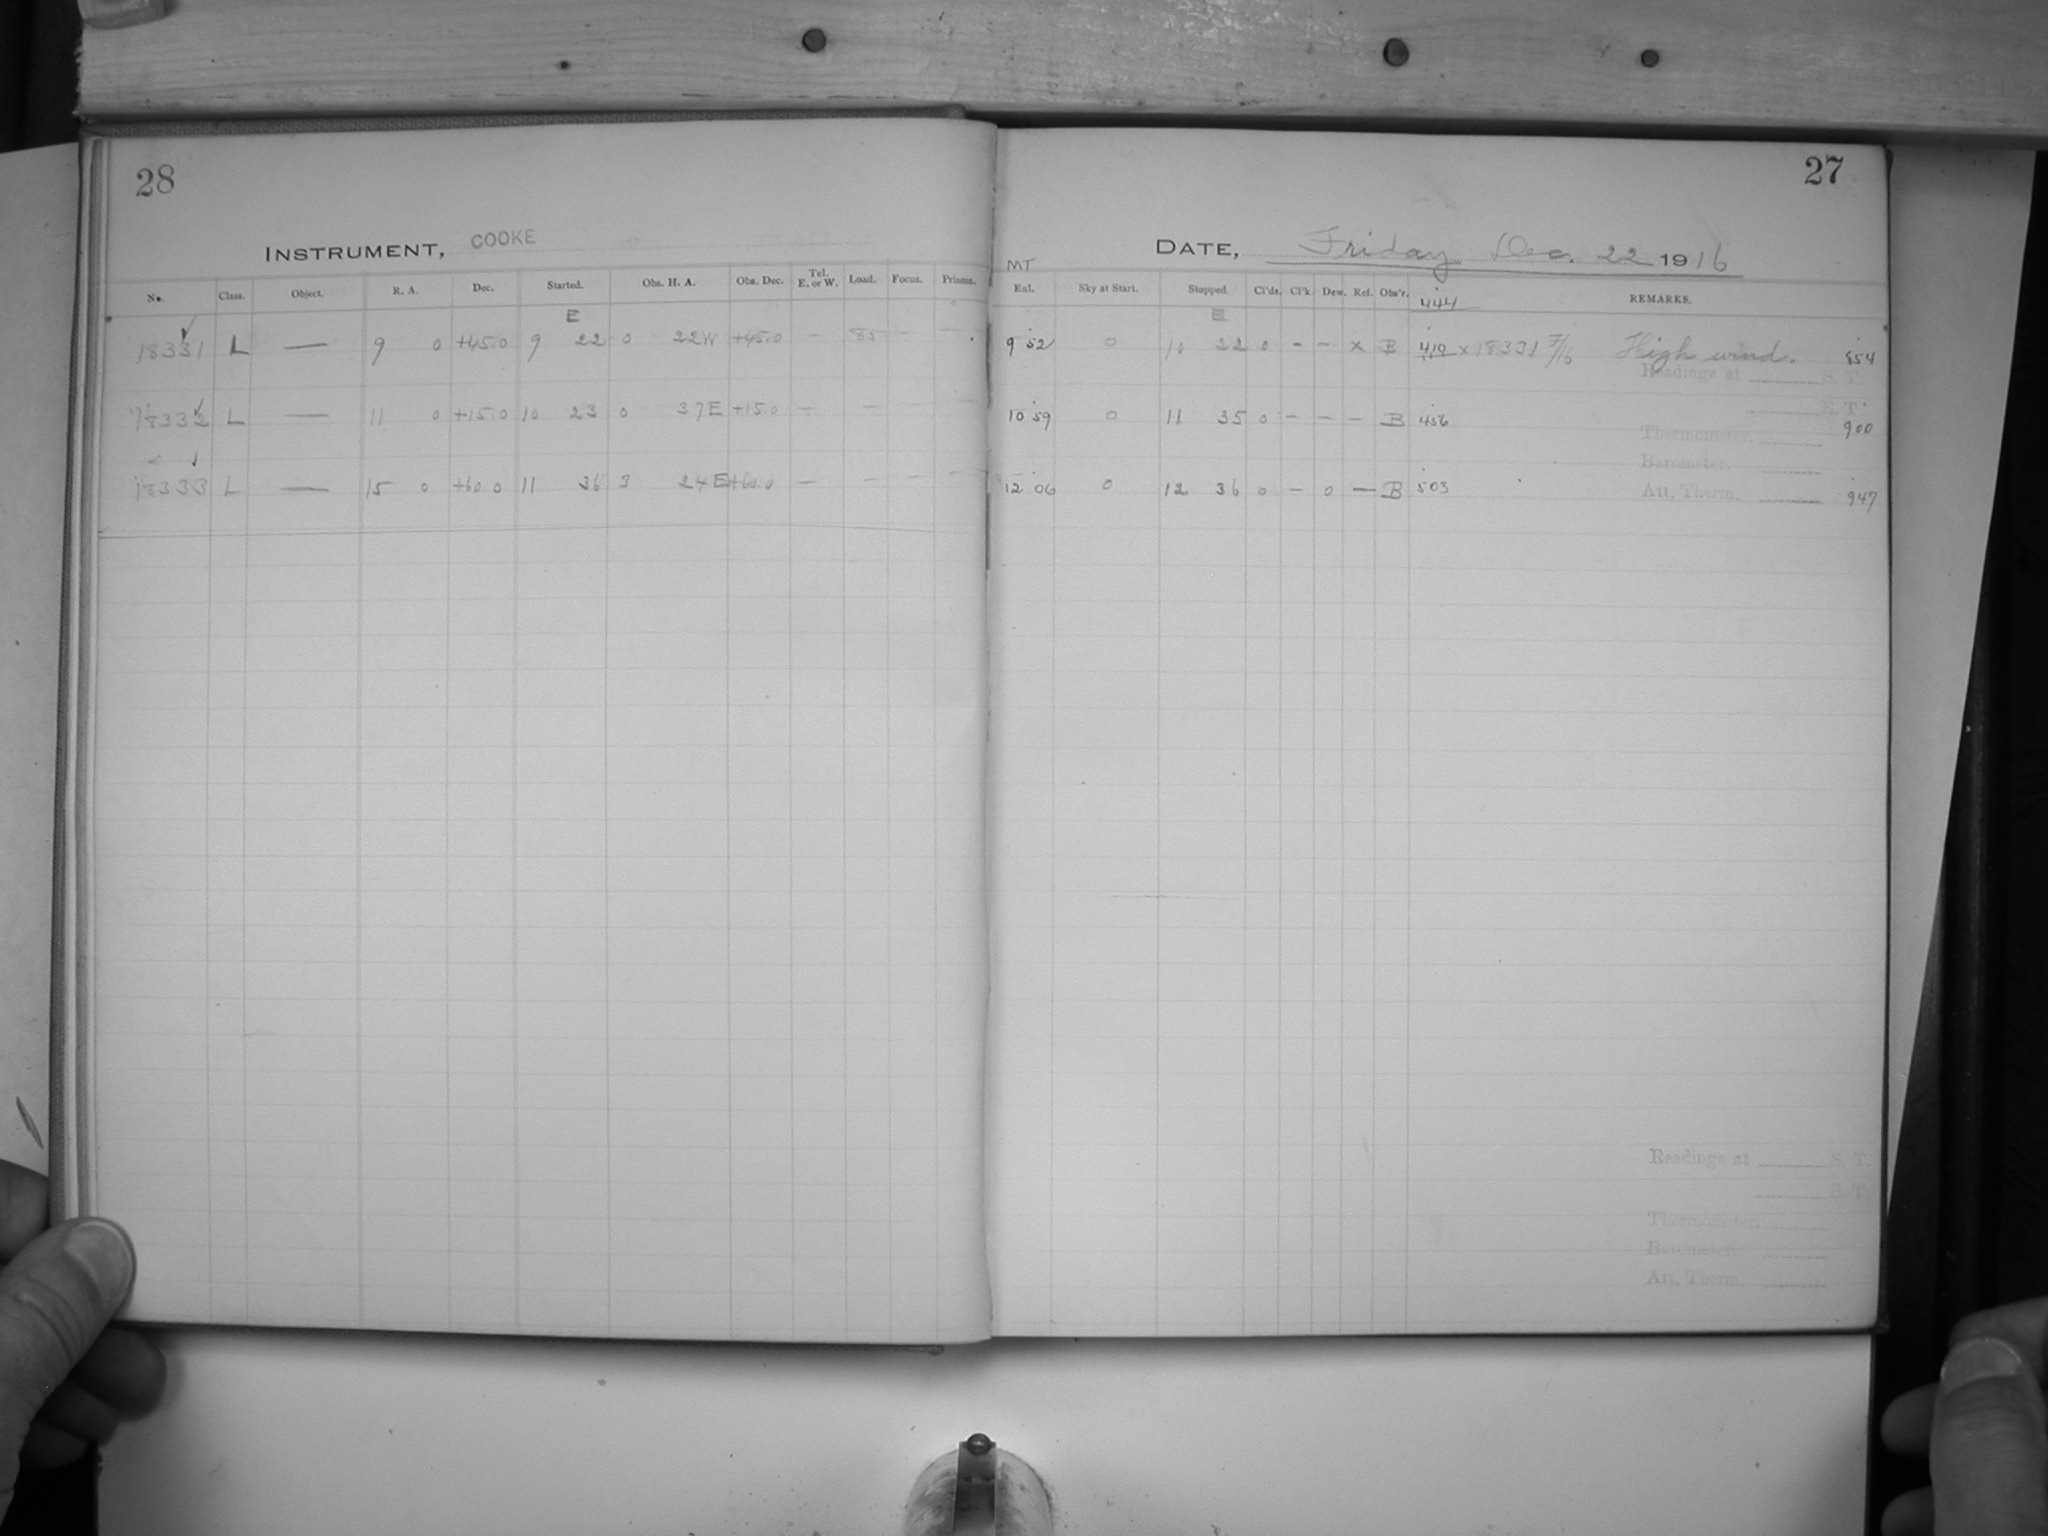 28
INSTRUMENT, COOKE
No. Class. Object. R. A. Dec. Started. Obs. H. A. Obs. Dec. Tel. E. or W. Load. Focus. Prisms.
E
18331 L — 9 0 +45.0 9 22 0 22W +45.0 — 85 — —
18332 L — 11 0 +15.0 10 23 0 37E +15.0 — — — —
18333 L — 15 0 +60.0 11 36 3 24E +60.0 — — — —
27
DATE, Friday Dec. 22 1916
MT
Enl. Sky at Start. Stopped. Cl'ds. Cl'k. Dew. Ref. Obs'r. 444 REMARKS.
E
9 52 0 10 22 0 - - x B 410 x 18331 7/16 High wind. 854
Readings at S. T.
S. T.
10 59 0 11 35 0 - - - B 456 900
Thermometer,
Barometer,
12 06 0 12 36 0 - 0 — B 503 947
Att. Therm.
Readings at S. T.
S. T.
Thermometer,
Barometer,
Att. Therm.